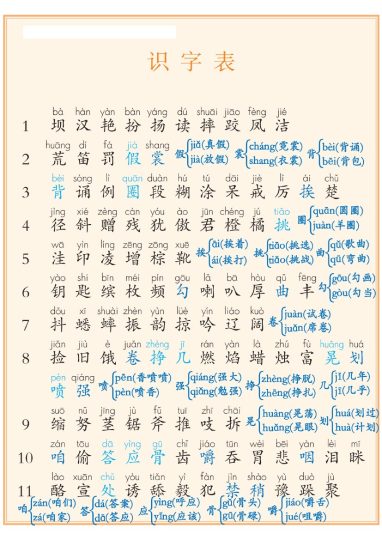 识字表
bà hàn yàn bàn yáng dú shuāi jiāo fèng jié
1 坝 汉 艳 扮 扬 读 摔 跤 凤 洁
huāng dí fá jià shang
2 荒 笛 罚 假 裳 假 jiǎ(真假) jià(放假) 裳 cháng(霓裳) shang(衣裳) 背 bèi(背诵) bēi(背包)
bèi sòng lì quān duàn hú tú dāi jiè lì āi chǔ
3 背 诵 例 圈 段 糊 涂 呆 戒 厉 挨 楚
jìng xié zèng cán yóu ào jūn chéng jú tiāo
4 径 斜 赠 残 犹 傲 君 橙 橘 挑 圈 quān(圆圈) juàn(羊圈)
wā yìn líng zēng zōng xuē
5 洼 印 凌 增 棕 靴 挨 āi(挨着) ái(挨打) 挑 tiāo(挑选) tiǎo(挑战) 曲 qǔ(歌曲) qū(弯曲)
yào shi bīn méi pín gōu lǎ bā hòu qǔ fēng
6 钥 匙 缤 枚 频 勾 喇 叭 厚 曲 丰 勾 gōu(勾画) gòu(勾当)
dǒu xī shuài zhèn yùn lüè yín liáo kuò
7 抖 蟋 蟀 振 韵 掠 吟 辽 阔 卷 juàn(试卷) juǎn(席卷)
jiǎn jiù é juàn zhèng jī rán yàn là zhú fù huàng huá
8 捡 旧 俄 卷 挣 几 燃 焰 蜡 烛 富 晃 划
pēn qiáng
喷 强 喷 pēn(香喷喷) pèn(喷香) 强 qiáng(强大) qiǎng(勉强) 挣 zhèng(挣脱) zhēng(挣扎) 几 jǐ(几年) jī(几乎)
suō nǔ jīng jù fǔ tuī zhī chāi
9 缩 努 茎 锯 斧 推 吱 拆 晃 huàng(晃荡) huǎng(晃眼) 划 huá(划过) huà(计划)
zán tōu dā yīng gǔ chǐ jiáo tūn wèi bēi yàn lèi mī
10 咱 偷 答 应 骨 齿 嚼 吞 胃 悲 咽 泪 眯
lào xuān chǔ yòu tiǎn yì fàn jīn shào yù duò jù
11 酪 宣 处 诱 舔 毅 犯 禁 稍 豫 跺 聚
咱 zán(咱们) zá(咱家) 答 dá(答案) dā(答应) 应 yìng(呼应) yīng(应该) 骨 gǔ(骨头) gū(骨碌) 嚼 jiáo(嚼舌) jué(咀嚼)